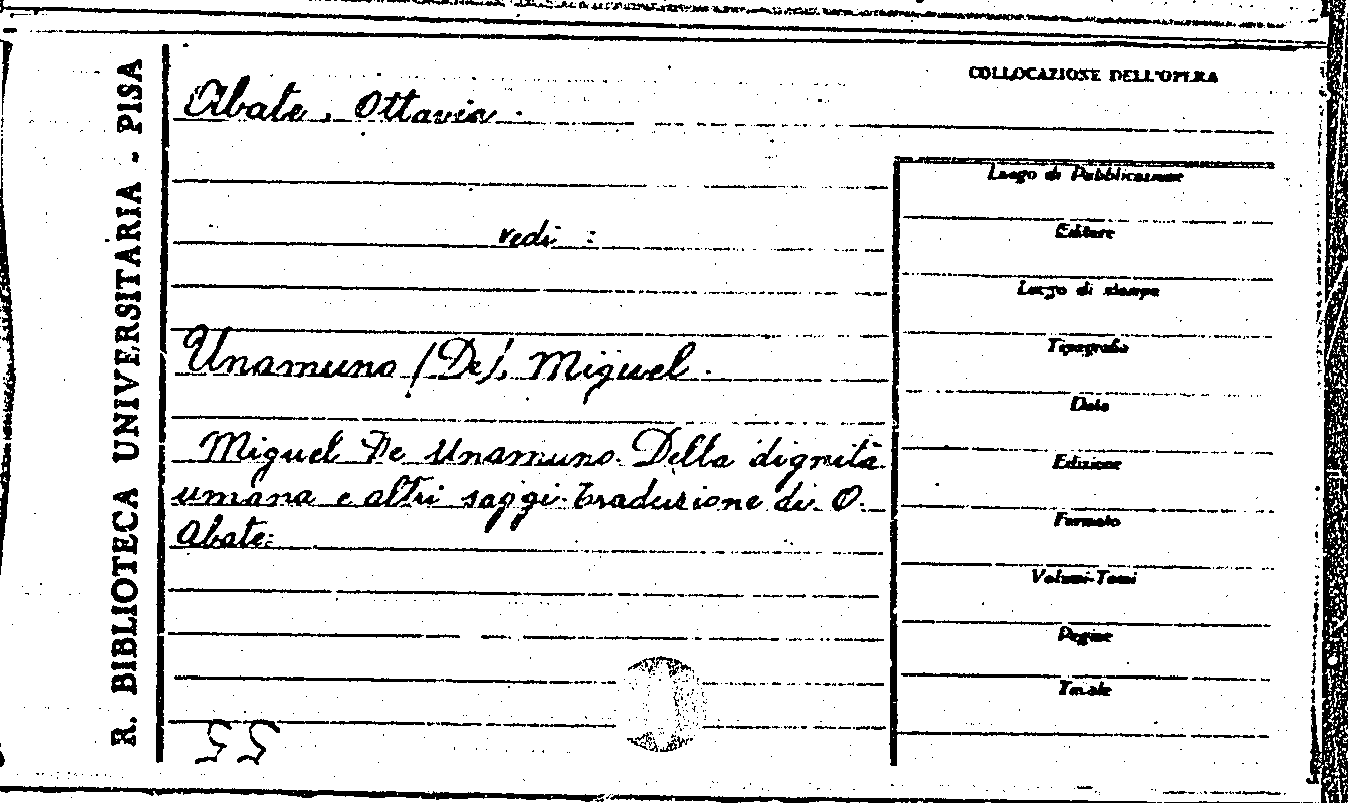 R. BIBLIOTECA UNIVERSITARIA - PISA
COLLOCAZIONE DELL'OPERA
Abate, Ottavia.
vedi:
Unamuno (De), Miguel.
Miguel De Unamuno. Della dignità
umana e altri saggi. Traduzione di O.
Abate:
55
Luogo di Pubblicazione
Editore
Luogo di stampa
Tipografia
Data
Edizione
Formato
Volumi-Tomi
Pagine
Totale